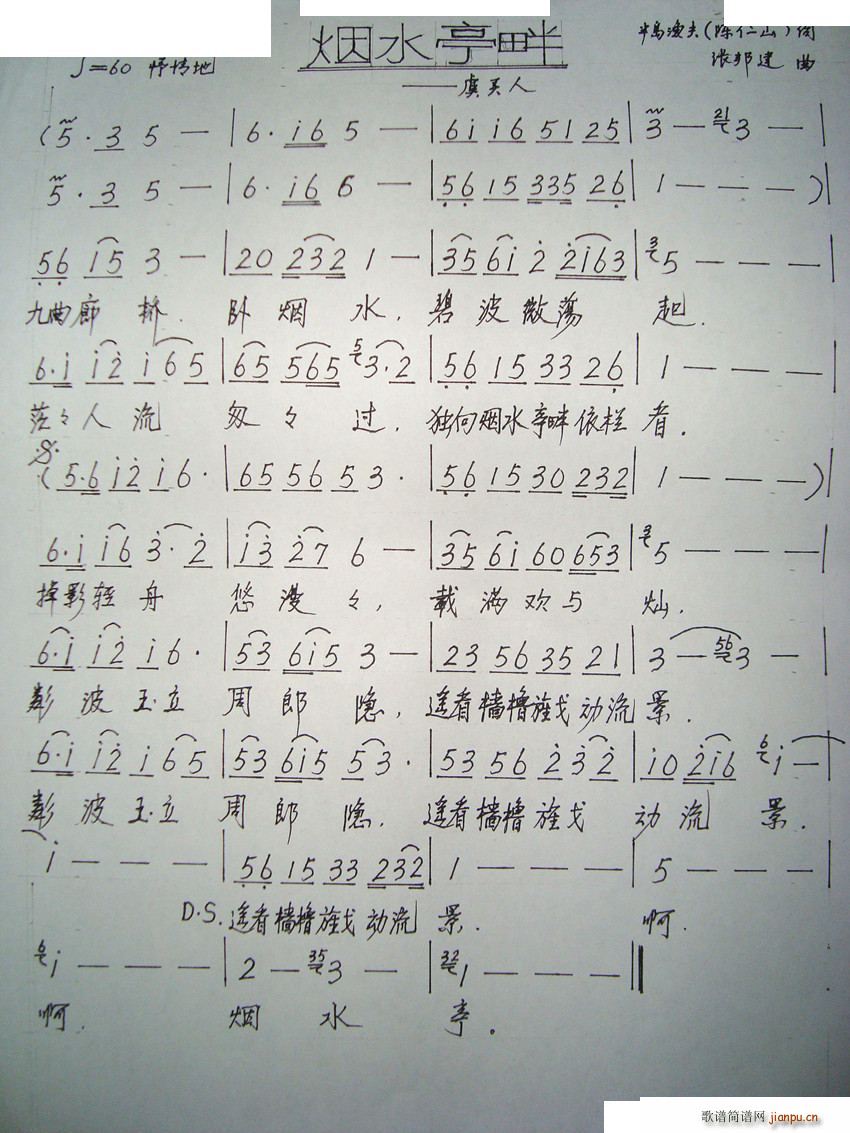 烟水亭畔
半岛渔夫(陈仁山)词
张邦建 曲
♩=60 抒情地
——虞美人
(5·3 5 — | 6·i6 5 — | 6i i6 51 25 | 3 — 21 3 — |
5·3 5 — | 6·i6 6 — | 56 15 335 26 | 1 — — — )|
56 15 3 — | 20 232 1 — | 35 6i 2 2i63 | 3 5 — — — |
九曲廊桥. 卧烟水, 碧波微荡 起.
6·i i2 i65 | 65 565 5 3·2 | 56 15 33 26 | 1 — — — |
茫々人流 匆々过. 独向烟水亭畔依栏看.
(5·6 i2 i6· | 65 56 53· | 56 15 30 232 | 1 — — — )|
6·i i6 3·2 | i3 27 6 — | 35 6i 60 653 | 3 5 — — — |
掉影轻舟 悠漫々, 载满欢与 灿.
6·i i2 i6· | 53 6i5 3 — | 23 56 35 21 | 3 — 56 3 — |
彭波玉立 周郎隐, 遥看樯橹旌戈动流景.
6·i i2 i65 | 53 6i5 53· | 53 56 2 32 | i0 2i6 6 i — |
彭波玉立 周郎隐. 遥看樯橹旌戈 动流景.
i — — — | 56 15 33 232 | 1 — — — | 5 — — — |
D.S. 遥看樯橹旌戈动流 景. 啊.
6 i — — — | 2 — 35 3 — | 32 1 — — — ‖
啊. 烟水 亭。
歌谱简谱网 jianpu.cn